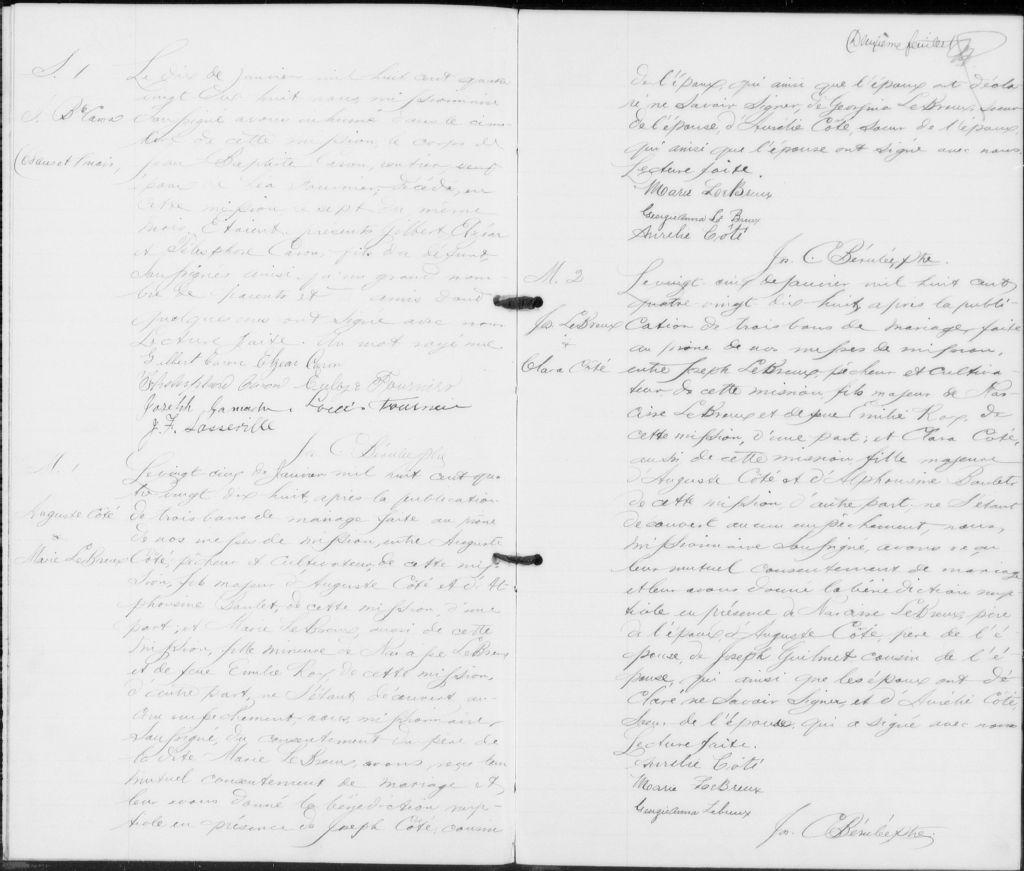 S. 1
J. Bte Caron
Le dix de janvier mil huit cent quatre
vingt dix huit nous missionnaire
soussigné avons inhumé dans le cime-
tière de cette mission, le corps de
Jean Baptiste Caron, rentier,
époux de Léa Fournier, décédé, en
cette mission, le sept du même
mois. Etaient présents Gilbert Elzear
et Télesphore Caron, fils du défunt
soussignés ainsi qu'un grand nom-
bre de parents et amis dont
quelques uns ont signé avec nous
Lecture faite. Un mot rayé nul.
Gilbert Caron Elzear Caron
Thelesphore Caron Fournier
Joseph Gamache. Louis Fournier
J. F. Lasserille
Jos. C. Bérubé, ptre
M. 1
Auguste Côté
&
Marie LeBreux
Le vingt cinq de janvier mil huit cent qua-
tre vingt dix huit, après la publication
de trois bans de mariage faite au prône
de nos messes de mission, entre Auguste
Côté, pêcheur et cultivateur, de cette mis-
sion, fils majeur d'Auguste Côté et d'Al-
phonsine Boulet, de cette mission, d'une
part; et Marie LeBreux, aussi de cette
mission, fille mineure de Narcisse LeBreux
et de feue Emilie Roy, de cette mission,
d'autre part, ne s'étant découvert au-
cun empêchement, nous, missionnaire,
soussigné, du consentement du père de
la dite Marie LeBreux, avons reçu leur
mutuel consentement de mariage et
leur avons donné la bénédiction nup-
tiale en présence de Joseph Côté, cousin
(Deuxième feuillet)
de l'époux, qui ainsi que l'époux ont décla-
ré ne savoir signer, de Georgina LeBreux, soeur
de l'épouse, d'Aurélie Côté, soeur de l'époux,
qui ainsi que l'épouse ont signé avec nous
Lecture faite.
Marie LeBreux
Georgieanna Le Breux
Aurélie Côté
Jos. C. Bérubé, ptre.
M. 2
Jos. LeBreux
+
Clara Côté
Le vingt cinq de janvier mil huit cent
quatre vingt dix huit, après la publi-
cation de trois bans de mariage, faite
au prône de nos messes de mission,
entre Joseph LeBreux, pêcheur et cultiva-
teur, de cette mission, fils majeur de Nar-
cisse LeBreux et de feue Emilie Roy, de
cette mission, d'une part; et Clara Côté,
aussi de cette mission fille majeure
d'Auguste Côté et d'Alphonsine Boulet
de cette mission d'autre part, ne s'étant
découvert aucun empêchement, nous,
missionnaire soussigné, avons reçu
leur mutuel consentement de mariage
et leur avons donné la bénédiction nup-
tiale en présence de Narcisse LeBreux, père
de l'époux, d'Auguste Côté, père de l'é-
pouse, de Joseph Guilmet cousin de l'é-
pouse, qui ainsi que les époux ont dé-
claré ne savoir signer, et d'Aurélie Côté,
soeur de l'épouse, qui a signé avec nous
Lecture faite.
Aurélie Côté
Marie LeBreux
Georgieanna Lebreux
Jos. C. Bérubé, ptre.